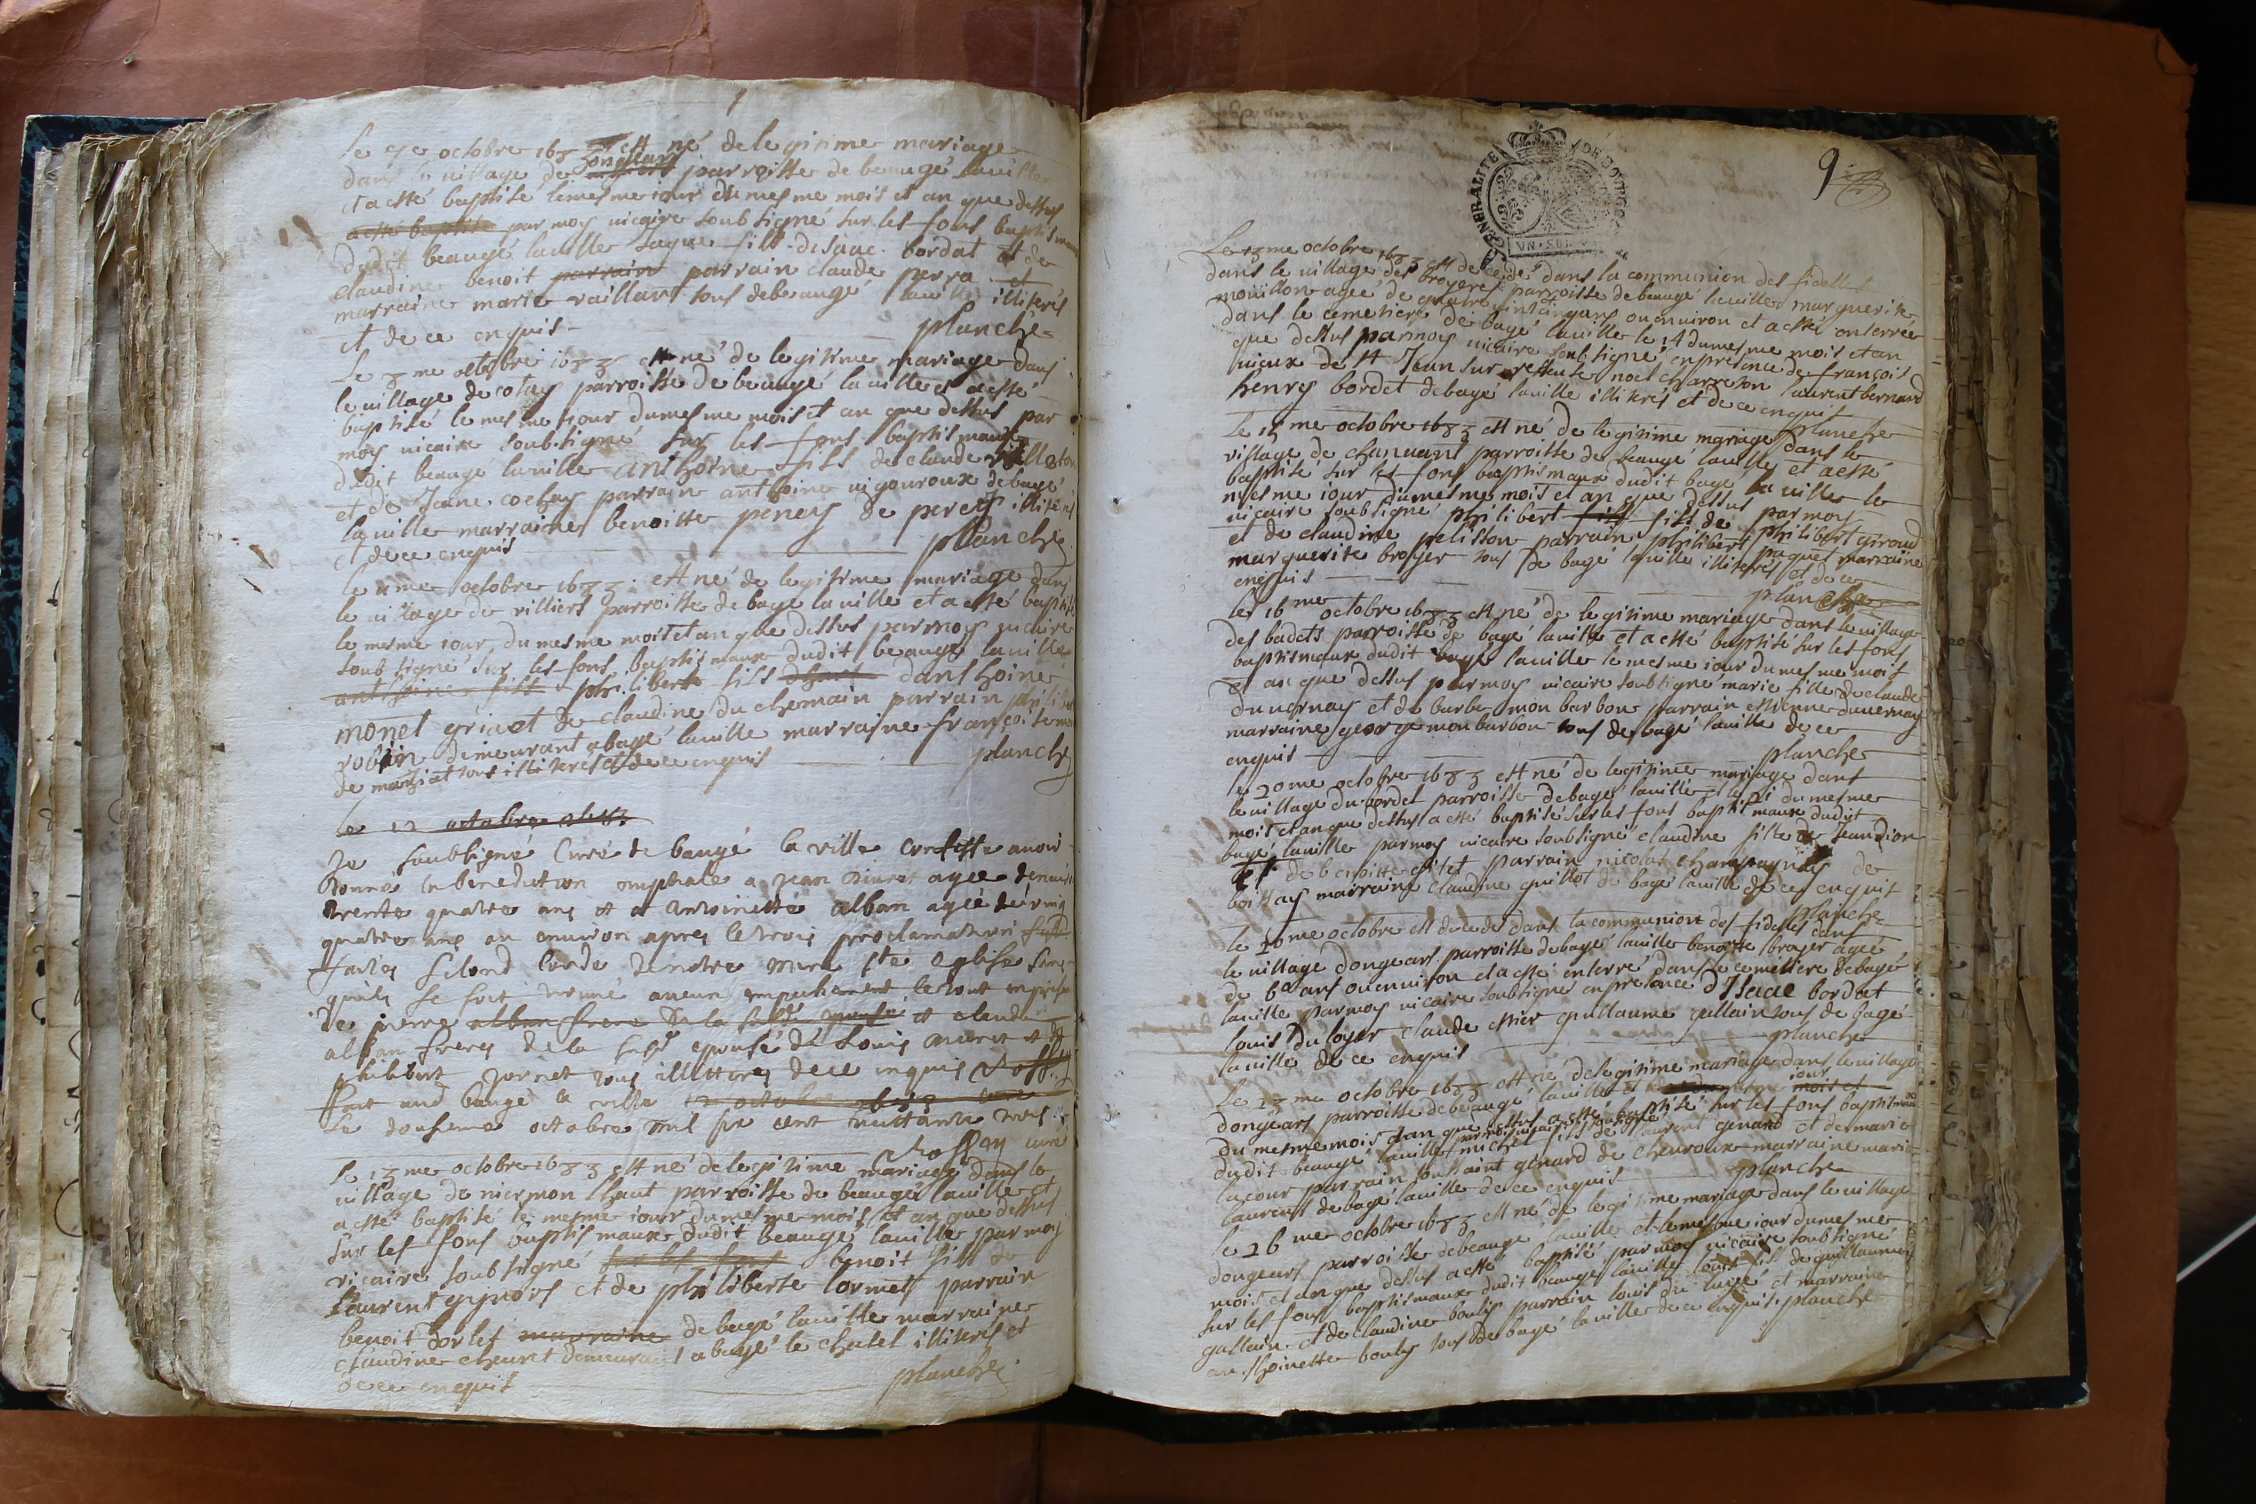 Le octobre 1683 est né de legitime mariage
dans le village de dongeart parroisse de beaugé laville
et a esté baptisé le mesme iour du mesme mois et an que dessus
a esté baptisé par moy vicaire soubsigné sur les fons baptismaux
dudit beaugé laville fils disaac bordat et de
claudine benoit parrain parrain claude perra et
marraine marie vaillant tous de beaugé laville illiterés
et de ce enquis
planche
Le me octobre 1683 est né de legitime mariage dans
le village de cotay parroisse de beaugé laville et a esté
baptisé le mesme iour du mesme mois et an que dessus par
moy vicaire soubsigné sur les fons baptismaux
dudit beaugé laville anthoine fils de claude
et de Jeane cochay parrain anthoine vigouroux de bagé
laville marraine benoitte peney de perex illiterés
et de ce enquis
planche
le me octobre 1683 est né de legitime mariage dans
le village de villiers parroisse de bagé laville et a esté baptisé
le mesme iour du mesme mois et an que dessus par moy vicaire
soubsigné sur les fons baptismaux dudit beaugé laville
anthoine fils philibert fils danthoine
monet griot de claudine du chemain parrain
robin demeurant a bagé laville marraine françoise
de marziat tous illiterés et de ce enquis
planche
Le 12 octobre
Je soubsigné Curé de baugé la ville certiffie avoir
donné la benediction nuptiale a Jean agee denviron
trente quatre ans et a antoinette alban agée de vingt
quatre ans ou environ apres le trois proclamations
faites selond lorde de nostre mere ste eglise sans
quils se soit trouvé aucun empechement le tout en presence
de pierre alban frere de la et claude
alban freres de la epousé de Louis et de
philibert tous illitteres de ce enquis
fait aud baugé la ville 12 octobre 1683 curé
Le douzieme octobre mil six cent huittante trois
curé
Le 13me octobre 1683 est né de legitime mariage dans le
village de niermon lhaut parroisse de beaugé laville et
a esté baptisé le mesme iour du mesme mois et an que dessus
sur les fons baptismaux dudit beaugé laville par moy
vicaire soubsigné sur les fons benoit fils de
laurent et de philiberte cormet parrain
benoit dorlet marraine de bagé laville marraine
claudine chevret demeurant a bagé le chatel illiterés et
de ce enquis
planche
GENERALITÉ DE BOURGOGNE
UN SOL
9
Le 13me octobre 1683 est decedé dans la communion des fidelles
dans le village des broyeres parroisse de beaugé laville marguerite
mouillon agée de quatre vingt ans ou environ et a esté enterrée
dans le cemetiere de bagé laville le 14 du mesme mois et an
que dessus par moy vicaire soubsigné en presence de françois
nieux de st Jean sur ressouse noel charreton laurent bernard
henry bordet de bagé laville illiterés et de ce enquis
planche
Le 15me octobre 1683 est né de legitime mariage dans le
village de chanuant parroisse de beaugé laville et a esté
baptisé sur les fons baptismaux dudit bagé laville le
mesme iour du mesme mois et an que dessus par moy
vicaire soubsigné philibert fils fils de philibert giroud
et de claudine pelisson parrain philibert paquet marraine
marguerite broyer tous de bagé laville illiterés et de ce
enquis
planche
le 16me octobre 1683 est né de legitime mariage dans le village
des badets parroisse de bagé laville et a esté baptisé sur les fons
baptismaux dudit bagé laville le mesme iour du mesme mois
et an que dessus par moy vicaire soubsigné marie fille de claude
duvernay et de barbe monbarbon parrain estienne duvernay
marraine george monbarbon tous de bagé laville de ce
enquis
planche
le 20me octobre 1683 est né de legitime mariage dans
le village du bordet parroisse de bagé laville et le 21 du mesme
mois et an que dessus a esté baptisé sur les fons baptismaux dudit
bagé laville par moy vicaire soubsigné claudine fille de Jean dion
et de benoitte parrain nicolas champagnay de
boissay marraine claudine guillot de bagé laville de ce enquis
planche
le 20me octobre est decedé dans la communion des fidelles dans
le village dongeart parroisse de bagé laville benoitte broyer agée
de 60 ans ou environ et a esté enterré dans le cemetiere de bagé
laville par moy vicaire soubsigné en presence d'Isaac bordat
louis du loyer claude guillaume gallain tous de bagé
laville de ce enquis
planche
Le 23me octobre 1683 est né de legitime mariage dans le village
dongears parroisse de beaugé laville et iour mois et
du mesme mois et an que dessus a esté baptisé sur les fons baptismaux
dudit beaugé laville par moy vicaire soubsigné michel fils de laurent genard et de marie
lacour parrain toussaint genard de chevroux marraine marie
laurent de bagé laville de ce enquis
planche
le 26me octobre 1683 est né de legitime mariage dans le village
dongears parroisse de beaugé laville et le mesme iour du mesme
mois et an que dessus a esté baptisé par moy vicaire soubsigné
sur les fons baptismaux dudit beaugé laville louis fils de guillaume
gallain et de claudine bouly parrain louis du et marraine
anthoinette bouly tous de bagé laville de ce enquis planche